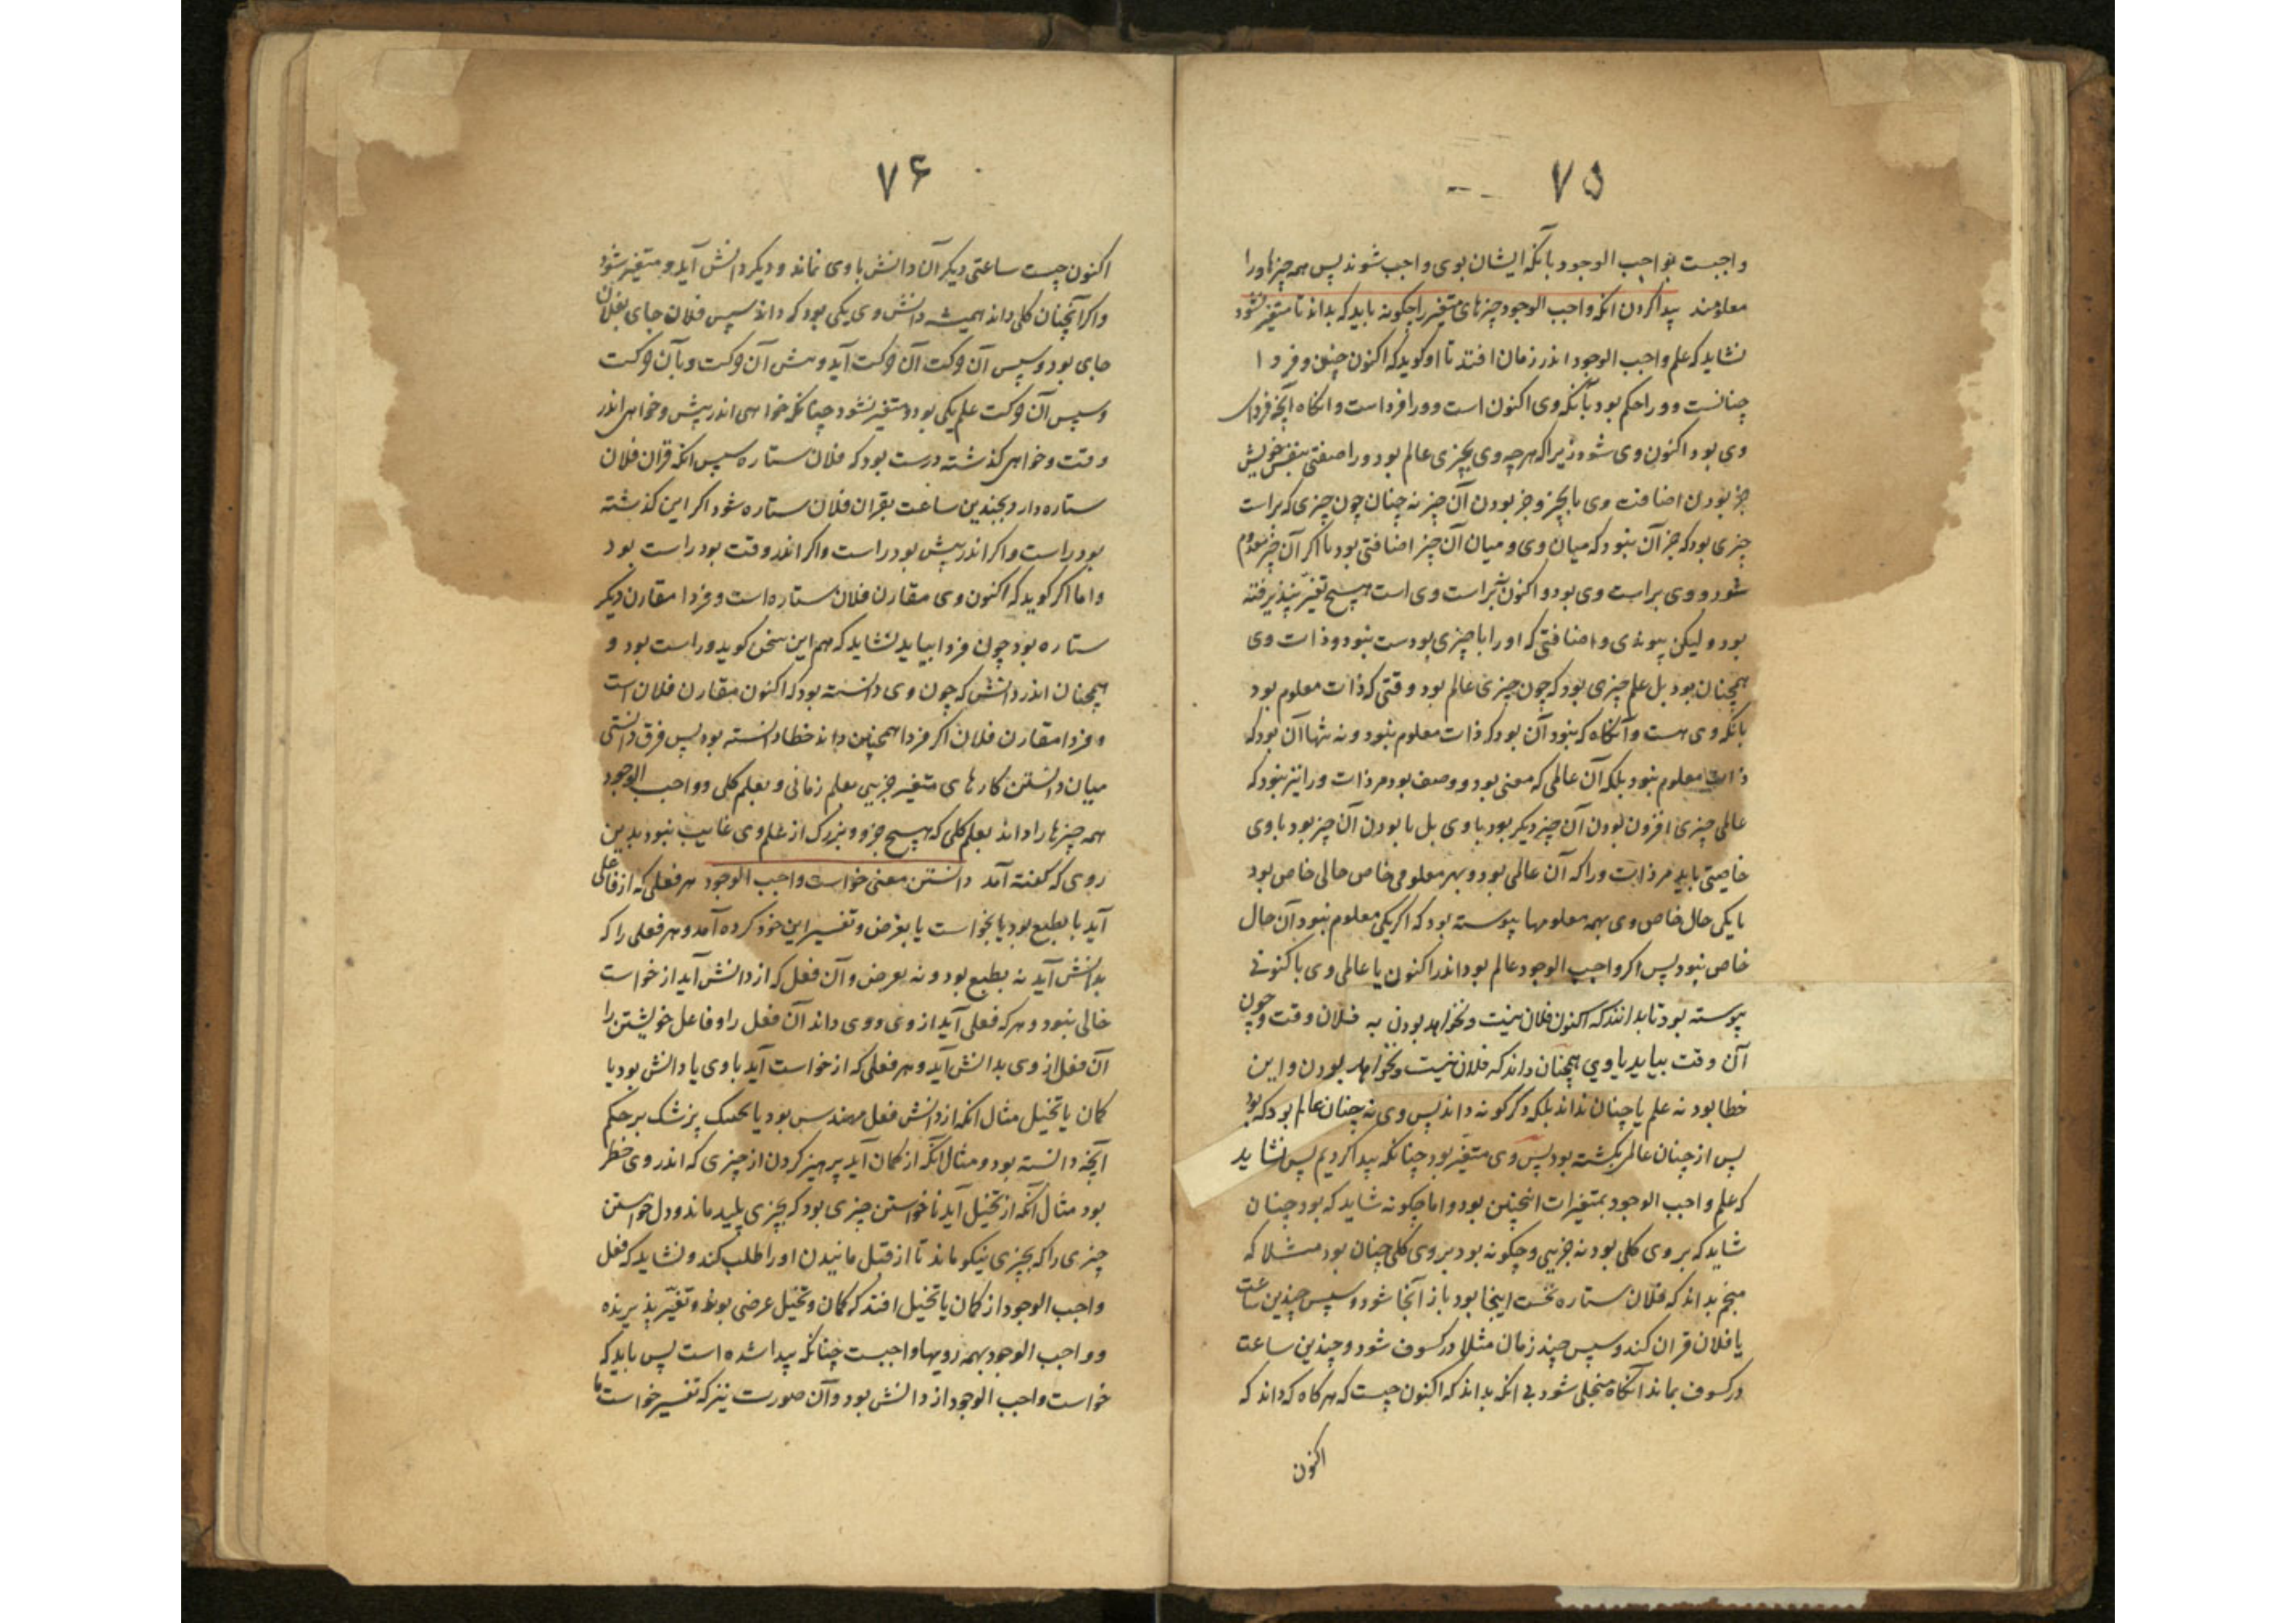 ۷۵
واجبست بواجب الوجود بآنکه ایشان بوی واجب شوند پس همه چیزها ورا
معلومند پیدا کردن انکه واجب الوجود چیزهای متغیر را چگونه باید که بداند تا متغیر نشود
نشاید که علم واجب الوجود اندر زمان افتد تا او کوید که اکنون چنین و فردا
چنانست و ورا حکم بود بآنکه وی اکنون است و ورا فردا است و انکاه آنچه فردای
وی بود اکنون وی شود زیرا که هر چه وی بچیزی عالم بود ورا صفتی بنفس خویش
جز بودن اضافت وی با بچیز و جز بودن آن چیز نه چنان چون چیزی که براست
چیزی بود که جز آن نبود که میان وی و میان آن چیز اضافتی بود تا اکر آن چیز معدوم
شود و وی براست وی بود و اکنون براست وی است هیچ تغیر نپذیرفته
بود و لیکن پیوندی و اضافتی که او را با چیزی بودست نبود و ذات وی
همچنان بود بل علم چیزی بود که چون چیزی عالم بود وقتی که ذات معلوم بود
بانکه وی هست و آنکاه که نبود آن بود که ذات معلوم نبود و نه تنها آن بود که
ذات معلوم نبود بلکه آن عالمی که معنی بود و وصف بود مر ذات ورا نیز نبود که
عالمی چیزی افزون بودن آن چیز دیکر بود با وی بل با بودن آن چیز بود با وی
خاصیتی باید مر ذات ورا که آن عالمی بود و بهر معلومی خاص حالی خاص بود
یا یکی حال خاص وی بهمه معلومها پیوسته بود که اکر یکی معلوم نبود آن حال
خاص نبود پس اکر واجب الوجود عالم بود اندر اکنون یا عالمی وی باکنونی
پیوسته بود تا بدانند که اکنون فلان نیست و نخواهد بودن به فلان وقت و چون
آن وقت بیاید یا وی همچنان داند که فلان نیست و نخواهد بودن و این
خطا بود نه علم یا چنان نداند بلکه دگرگونه داند پس وی نه چنان عالم بود که بود
پس از چنان عالم بگشته بود پس وی متغیر بود چنانکه پیدا کردیم پس نشاید
که علم واجب الوجود بمتغیرات انچنین بود و اما چگونه شاید که بود چنان
شاید که بر وی کلی بود نه جزیی و چگونه بود بروی کلی چنان بود مثلا که
منجم بداند که فلان ستاره نخست اینجا بود باز آنجا شود و سپس چندین ساعت
با فلان قران کند و سپس چند زمان مثلا در کسوف شود و چندین ساعت
در کسوف بماند آنگاه منجلی شود بی انکه بداند که اکنون چیست که هر کاه که داند که
اکنون
۷۶
اکنون چیست ساعتی دیکر آن دانش با وی نماند و دیکر دانش آید و متغیر شود
و اکر آنچنان کلی داند همیشه دانش وی یکی بود که داند سپس فلان جای بفلان
جای بود و سپس آن حرکت آن حرکت آید و پیش آن حرکت و با آن حرکت
و سپس آن حرکت علم یکی بود و متغیر نشود چنانکه خواهی اندر پیش و خواهی اندر
وقت و خواهی کذشته درست بود که فلان ستاره سپس انکه قران فلان
ستاره دارد بچندین ساعت بقران فلان ستاره شود اکر این کذشته
بود راست و اکر اندر پیش بود راست و اکر اندر وقت بود راست بود
و اما اکر کوید که اکنون وی مقارن فلان ستاره است و فردا مقارن دیکر
ستاره بود چون فردا بیاید نشاید که هم این سخن کوید و راست بود و
همچنان اندر دانش که چون وی دانسته بود که اکنون مقارن فلان است
و فردا مقارن فلان اکر فردا همچنین داند خطا دانسته بود پس فرق دانستی
میان دانستن کارهای متغیر جزیی بعلم زمانی و بعلم کلی و واجب الوجود
همه چیزها را داند بعلم کلی که هیچ جزو و بزرگ از علم وی غایب نبود بدین
روی که کفته آمد دانستن معنی خواست واجب الوجود هر فعلی که از فاعلی
آید یا بطبع بود یا بخواست یا بعرض و تفسیر این خود کرده آمد و هر فعلی را که
بدانش آید نه بطبع بود و نه بعرض و آن فعل که از دانش آید از خواست
خالی نبود و هر که فعلی آید از وی و وی داند آن فعل را و فاعل خویشتن را
آن فعل از وی بدانش آید و هر فعلی که از خواست آید با وی یا دانش بود یا
کمان یا تخیل مثال انکه از دانش فعل مهندس بود یا پزشک بر حکم
آنچه دانسته بود و مثال آنکه از کمان آید پرهیز کردن از چیزی که اندر وی خطر
بود مثال آنکه از تخیل آید نا خواستن چیزی بود که بچیزی پلید ماند و دل خواستن
چیزی را که بچیزی نیکو ماند تا از قبل مانیدن او را طلب کند و نشاید که فعل
واجب الوجود از کمان یا تخیل افتد که کمان و تخیل عرضی بود و تغیر پذیرنده
و واجب الوجود بهمه رویها واجبست چنانکه پیدا شده است پس باید که
خواست واجب الوجود از دانش بود و آن صورت نیز که تفسیر خواست ما